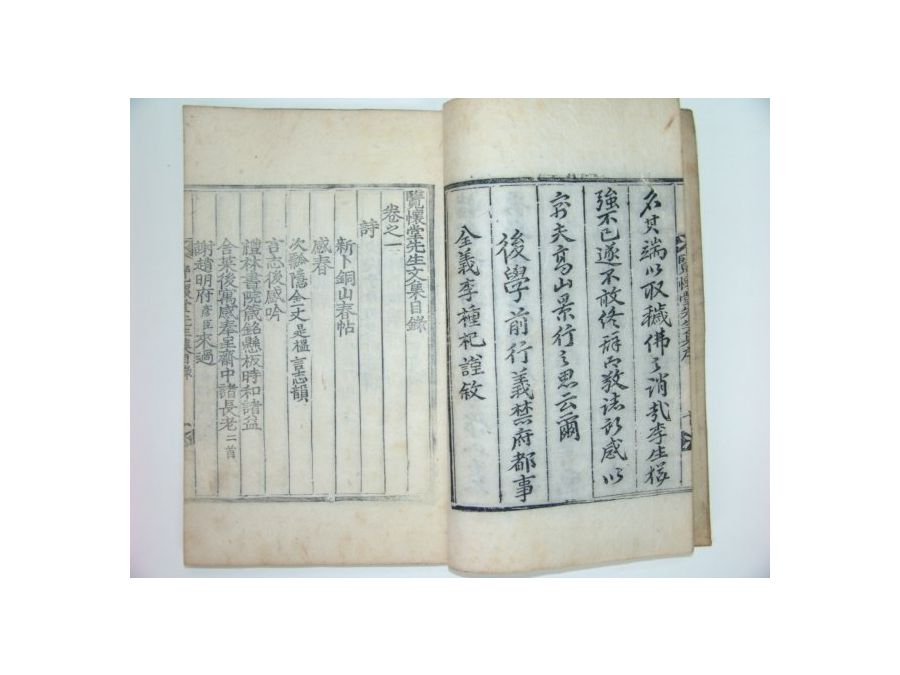 名其端以取穢佛之誚哉李生
強不已遂不敢終辭而敬誌所感以
高山景行之思云爾
後學前行義禁府都事
全義李種杞謹敘
覽懷堂先生文集目錄
卷之一
詩
新卜銅山春帖
感春
次齡隱全丈是榲言志韻
言志後感吟
禮林書院箴銘懸板時和諸益
會英後寓感奉呈齋中諸長老二首
謝趙明府來過